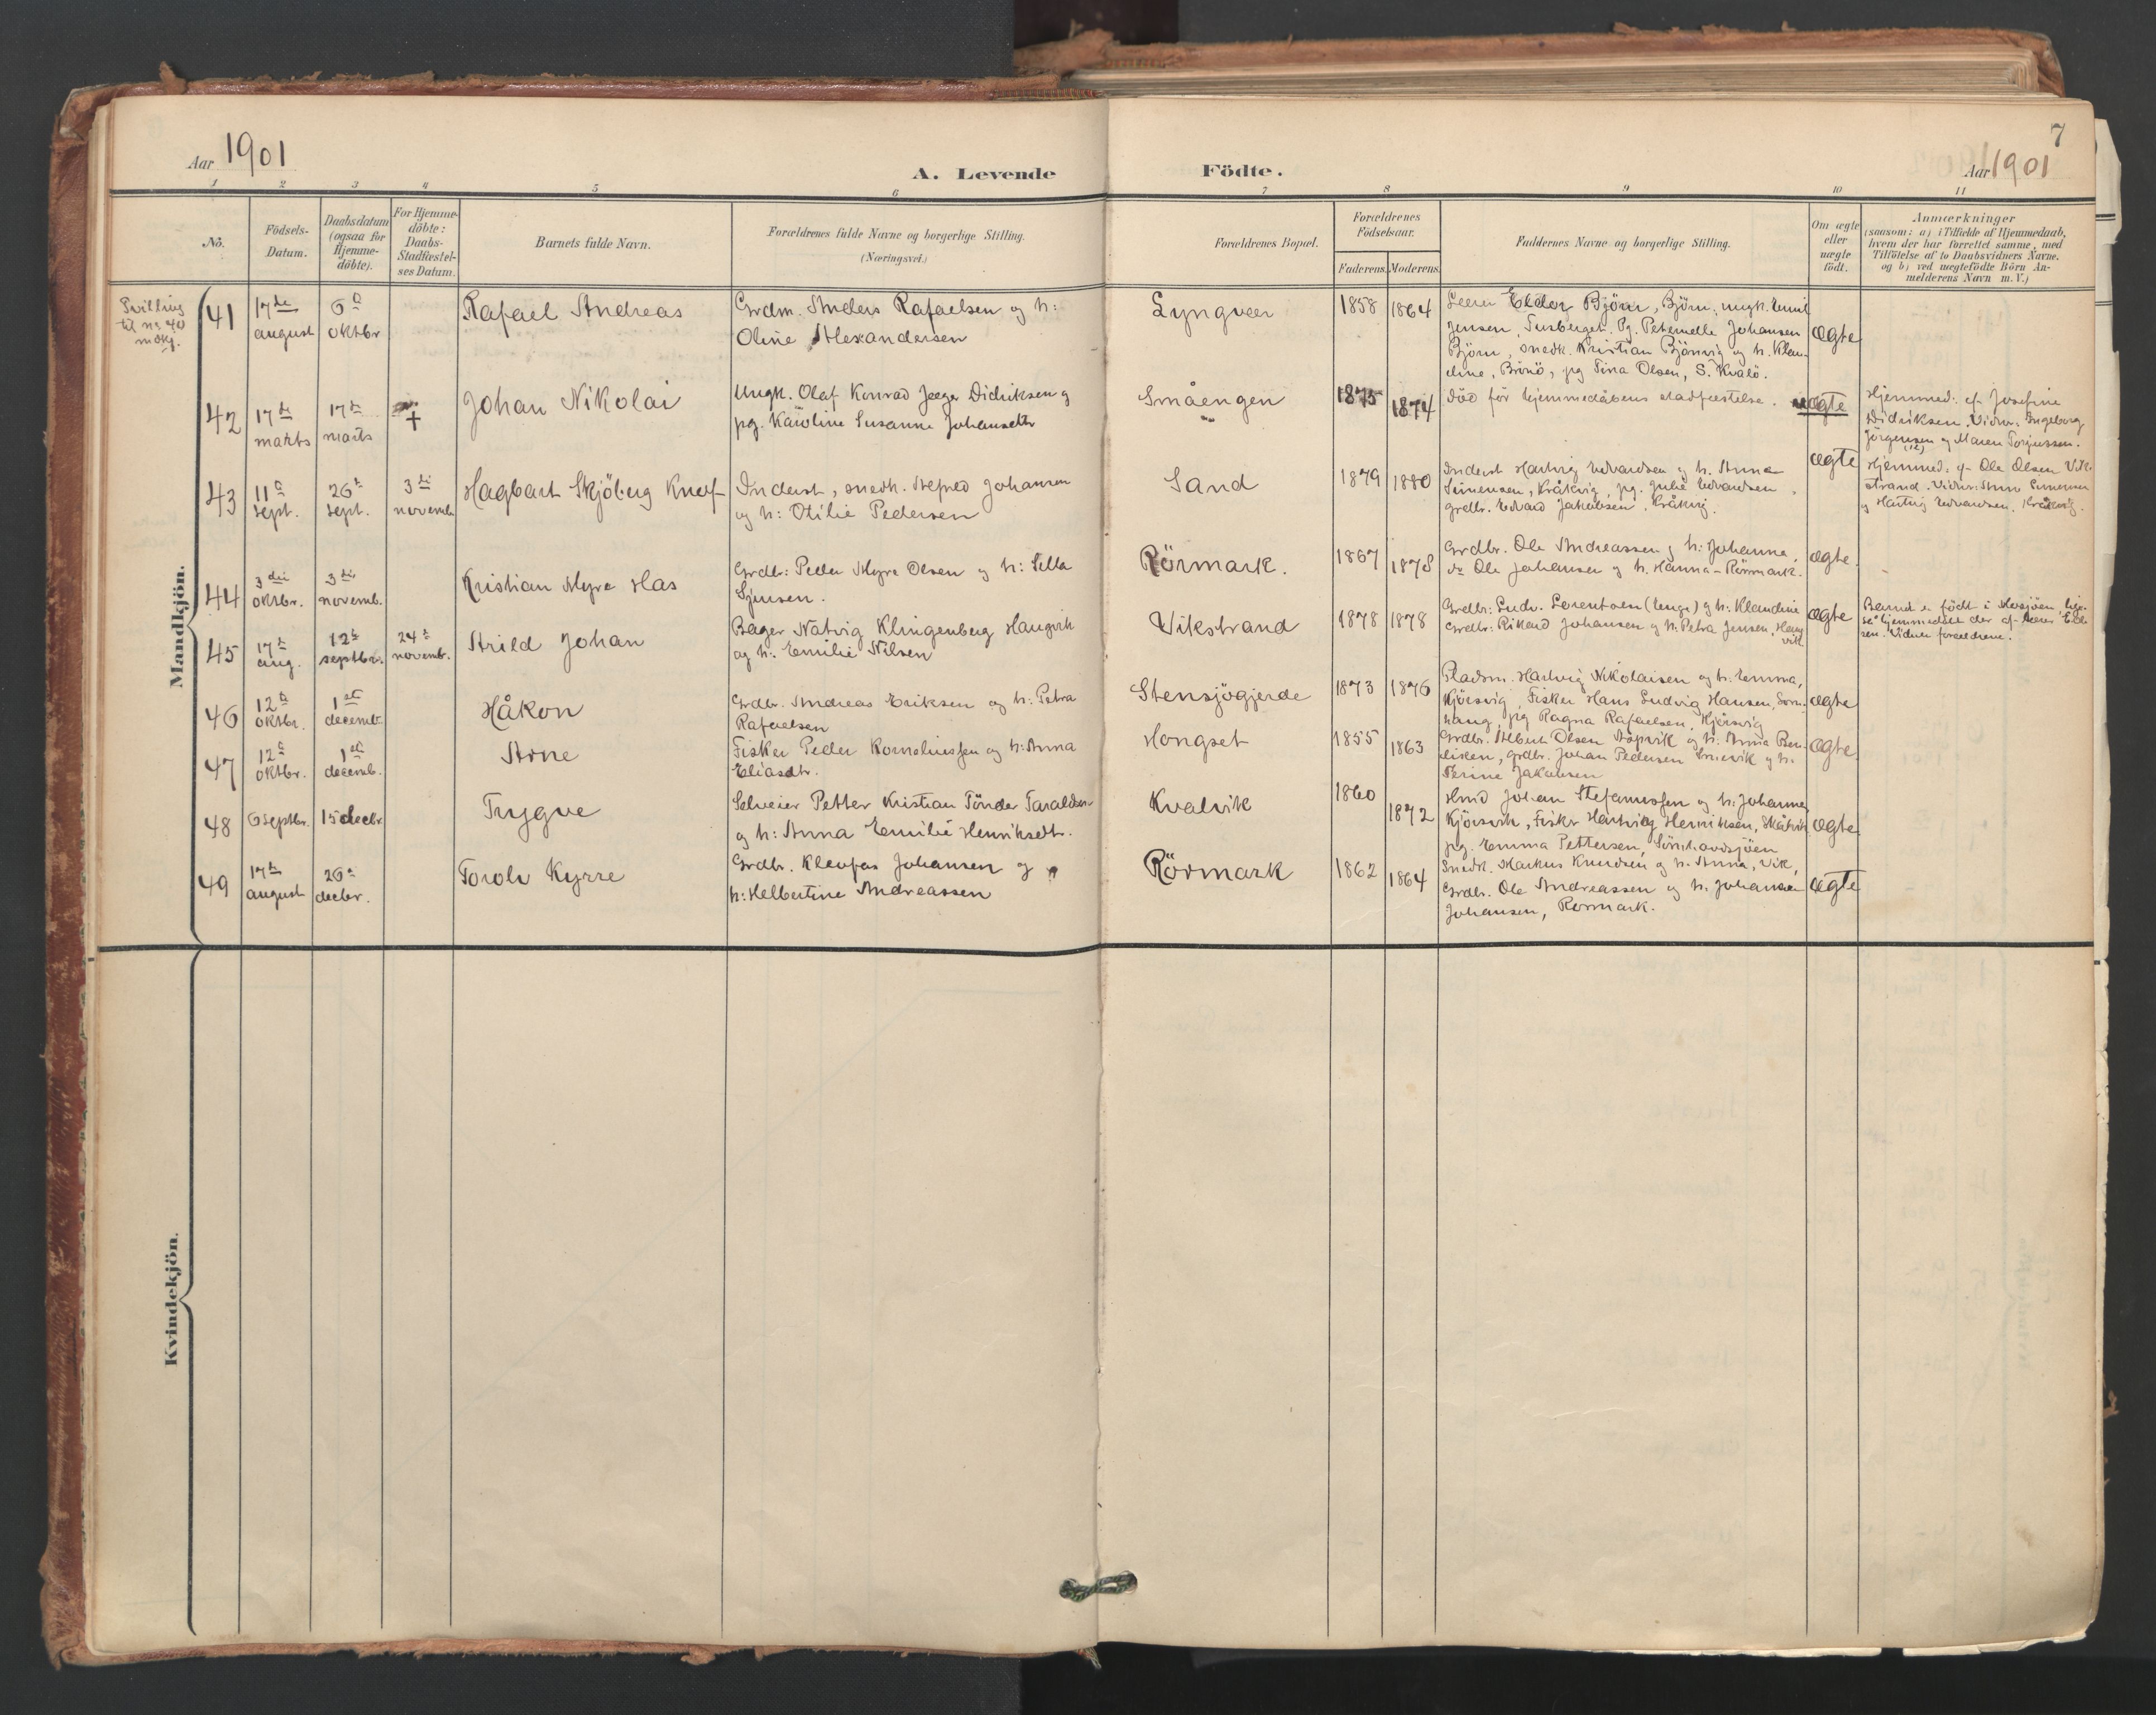 7
Aar 1901
A. Levende Födte.
Aar 1901
1 2 3 4 5 6 7 8 9 10 11
No.
Födsels-
Datum.
Daabsdatum
(ogsaa for
Hjemme-
döbte).
For Hjemme-
döbte:
Daabs-
Stadfæstel-
ses Datum.
Barnets fulde Navn.
Forældrenes fulde Navne og borgerlige Stilling.
(Næringsvei.)
Forældrenes Bopæl.
Forældrenes
Födselsaar.
Faderens. Moderens.
Faddernes Navne og borgerlige Stilling.
Om ægte
eller
uægte
födt.
Anmærkninger
(saasom: a) i Tilfælde af Hjemmedaab,
hvem der har forrettet samme, med
Tilföielse af to Daabsvidners Navne.
og b) ved uægtefödte Börn An-
melderens Navn m. V.)
Mandkjön.
Tvilling
til no 40
41
17de
august
6te
oktbr
Rafael Andreas
Grdm. Anders Rafaelsen og h:
Oline Alexandersen
Lyngveer
1858 1864
Eldor Björn, Björn, ungk. Emil
Jensen, Pg. Peternelle Johansen
Björn, snedk. Kristian Björnvig og h. Klau-
dine, Brönö, pg Tina Olsen, S. Kvalö.
ægte
42
17de
marts
17de
marts
+
Johan Nikolai
Ungk. Olaf Konrad Jæger Didriksen og
pg. Karoline Susanne Johansdtr
Småengen
1875 1874
död för hjemmedåbens stadfæstelse.
uægte
Hjemmed: af Josefine
Didriksen. Vidner: Ingeborg
Jörgensen og Maren Torjussen.
43
11te
sept.
26de
sept.
3die
novemb.
Hagbart Skjöberg Knof
Inderst, snedk. Alfred Johansen
og h: Otilie Pedersen
Sand
1879 1880
Inderst Hartvig Edvardsen og h. Anna
Simensen, Kråkvig, pg. Julie Edvardsen,
grdbr. Edvard Jakobsen, Kråkvig.
ægte
Hjemmed: af Ole Olsen Vik-
strand. Vidner: Anna Simensen
og Hartvig Edvardsen, Kråkvig.
44
3die
oktbr.
3die
novemb.
Kristian Myre Has
Grdbr: Peder Myre Olsen og h:
Rörmark.
1867 1878
Grdbr. Ole Andreassen og h: Johanna,
do Ole Johansen og h. Hanna - Rörmark.
ægte
45
17de
aug.
12te
septbr.
24de
novemb.
Arild Johan
Bager Natvig Klingenberg Haugvik
og h: Emilie Nilsen
Vikstrand
1878 1878
Grdbr: Ludv. Lorentsen og h: Klaudine
Grdbr: Rikard Johansen og h: Petra Jensen, Haug-
vik
ægte
Barnet er födt i Mosjöen,
hjemmedöbt der af
Vidner forældrene.
46
12te
oktbr.
1ste
decemb.
Håkon
Grdbr. Andreas Eriksen og h: Petra
Rafaelsen
Stensjögjerde
1873 1876
Pladsm. Hartvig Nikolaisen og h: Emma,
Kjörsvig, Fisker Hans Ludvig Hansen, Sörn-
haug, pg Ragna Rafaelsen, Kjörsvig
ægte
47
12te
oktbr.
1ste
decemb.
Arne
Fisker Peder Korneliussen og h: Anna
Eliasdtr.
Hongset
1855 1863
Grdbr. Albert Olsen og h: Anna Ben-
diksen, grdbr. Johan Pedersen og h.
Jakobsen
ægte
48
6 septbr.
15 decbr
Trygve
Selveier Petter Kristian Tönder Taraldsen
og h: Anna Emilie Henriksdtr.
Kvalvik
1860 1872
Hmd Johan Stefanussen og h: Johanne,
Kjörsvik, Fisker Hartvig Henriksen,
pg. Emma Pettersen,
ægte
49
17de
august
26de
decbr.
Torolv Kyrre
Grdbr. Kleofas Johansen og
h: Helbertine Andreassen
Rörmark
1862 1864
Snedk. Markus Knudsen og h. Anna, Vik,
Grdbr. Ole Andreassen og h. Johanna
Johansen, Rörmark.
ægte
Kvindekjön.